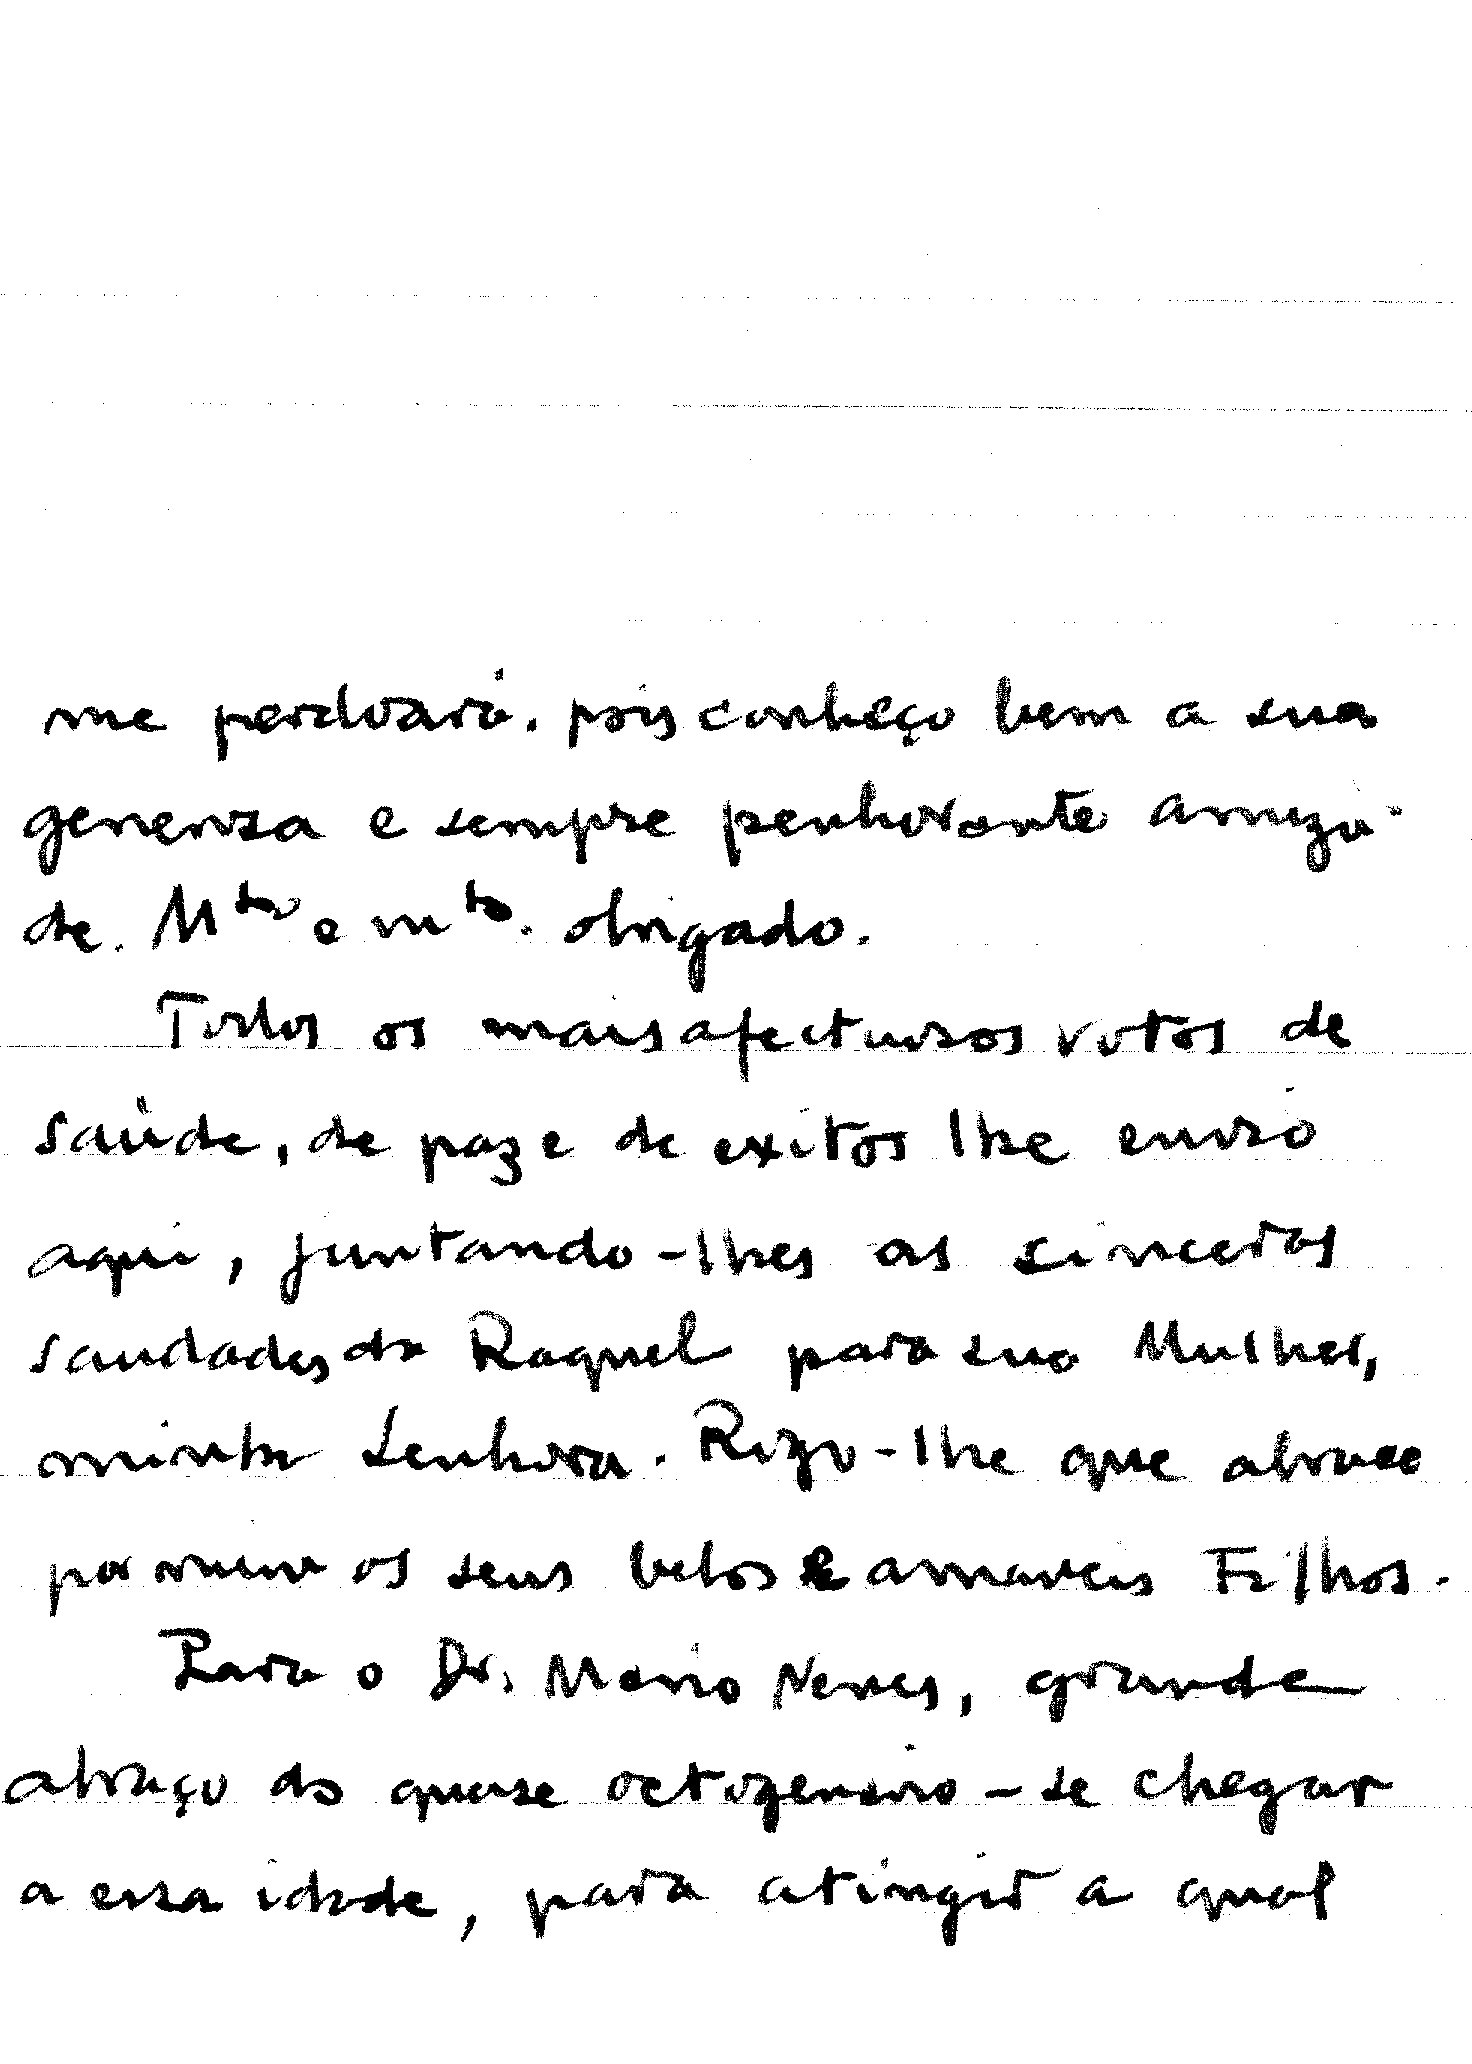 me perdoará, pois conheço bem a sua
generosa e sempre penhorante amiza-
de. Mto e mto. obrigado.
Todos os mais afectuosos votos de
saúde, de paz e de exitos lhe envio
aqui, juntando-lhes as sinceras
saudades da Raquel para sua Mulher,
minha Senhora. Rogo-lhe que abrace
por mim os seus belos e amaveis Filhos.
Para o Dr. Mario Neves, grande
abraço do quase octogenário - se chegar
a essa idade, para atingir a qual